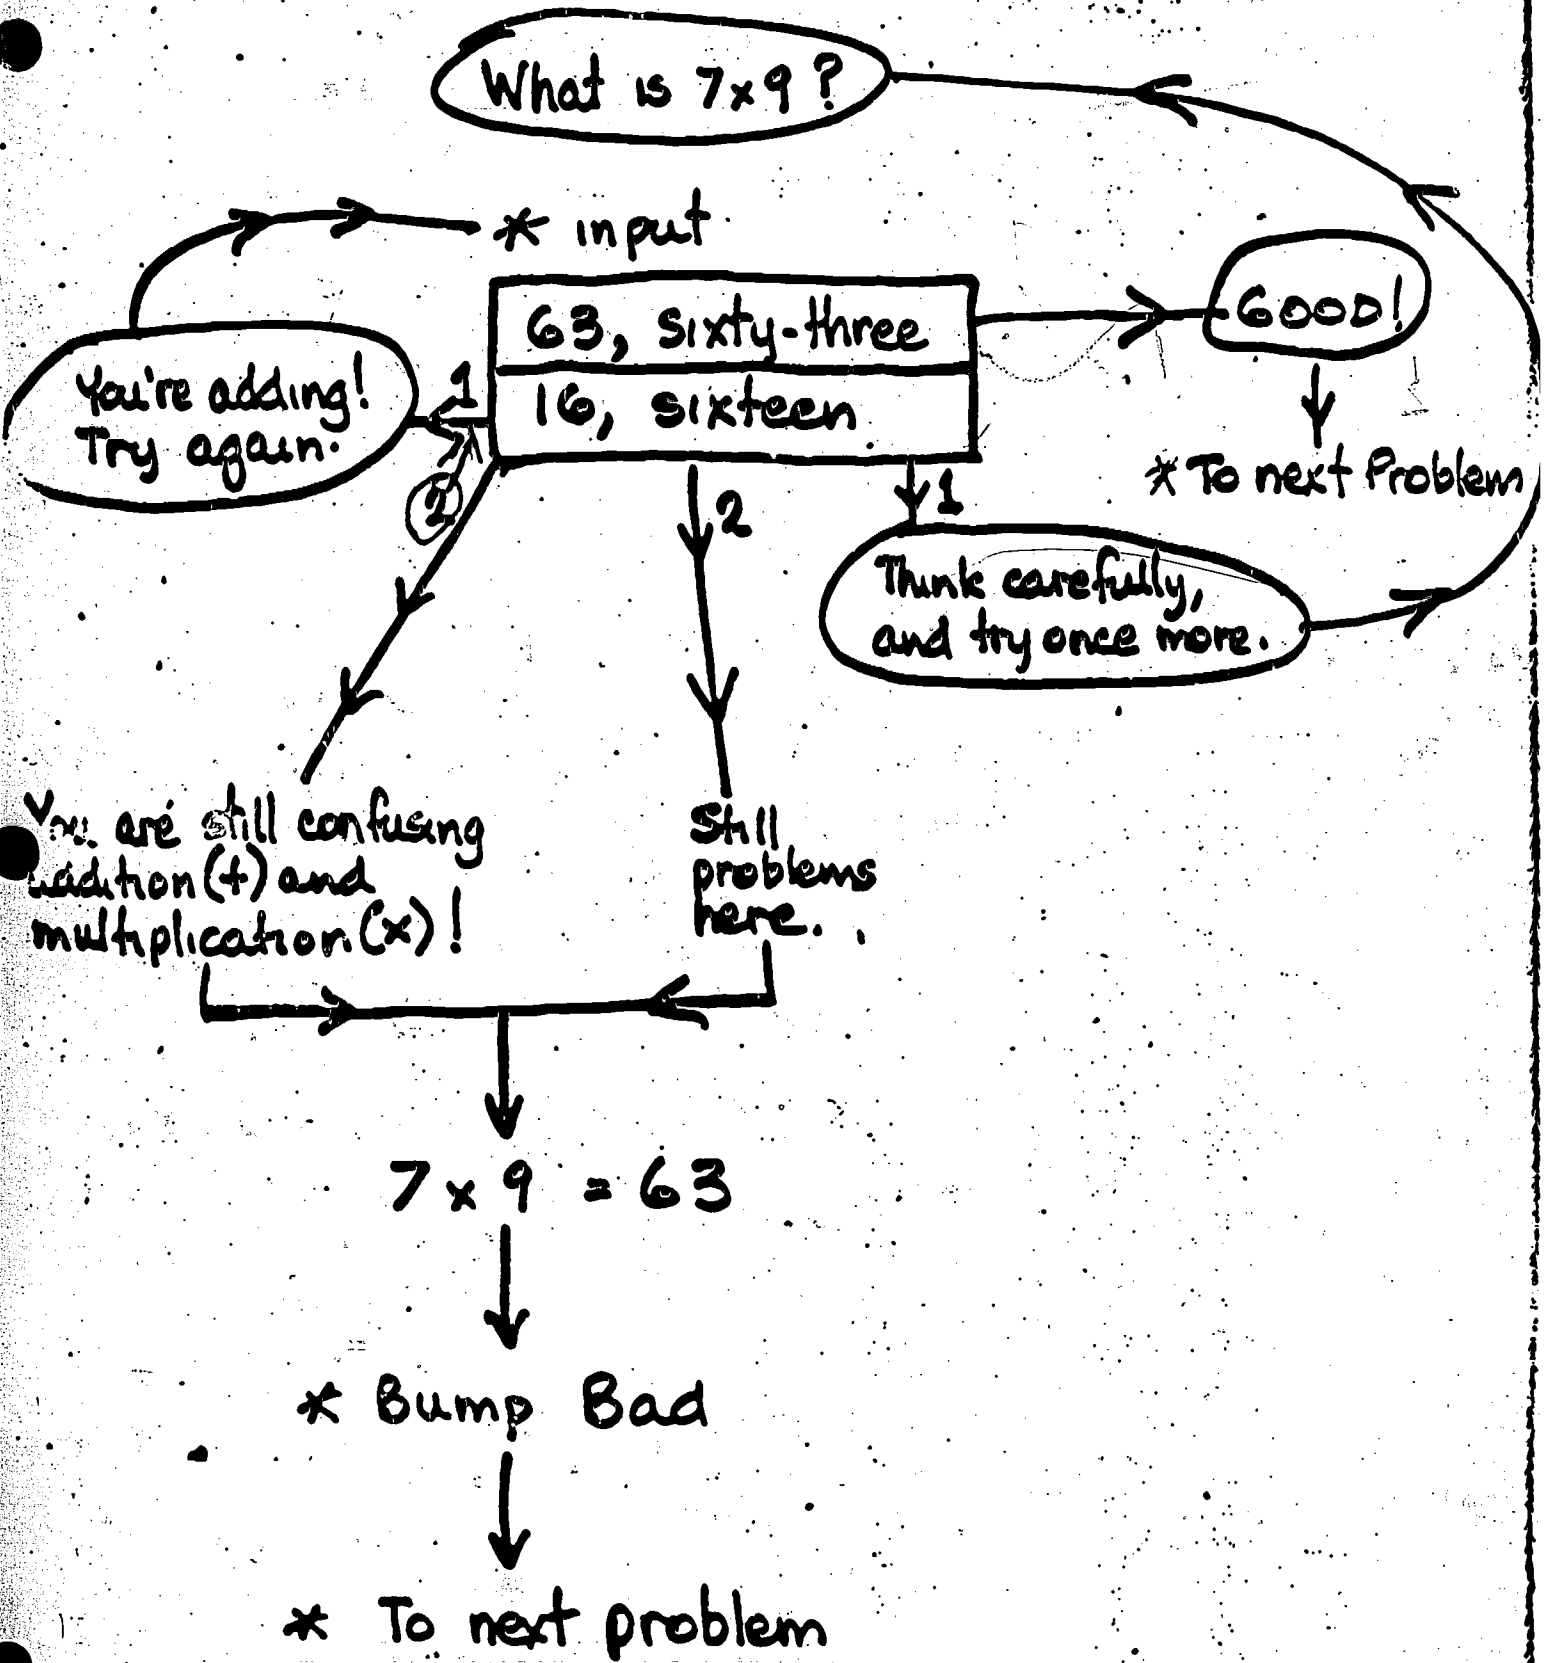 What is 7x9?
* input
63, sixty-three
16, sixteen
GOOD!
You're adding!
Try again.
1
2
* To next Problem
2
1
Think carefully,
and try once more.
You are still confusing
addition (+) and
multiplication (x)!
Still
problems
here.
7 x 9 = 63
* Bump Bad
* To next problem